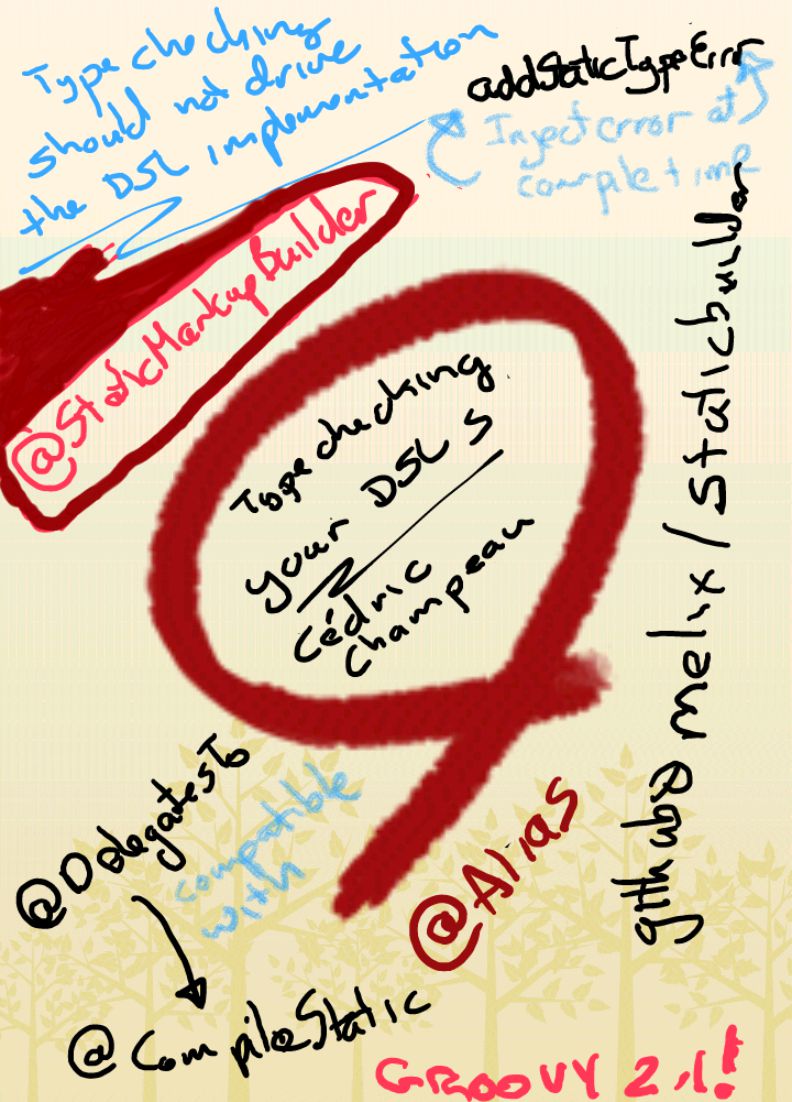 Type checking
should not drive
the DSL implementation
addStaticTypeError
Inject error at
compile time
@StaticMarkupBuilder
Type checking
your DSLs
Cédric
Champeau
github@melix/staticbuilder
@DelegatesTo
compatible
with
@CompileStatic
@Alias
GROOVY 2.1!